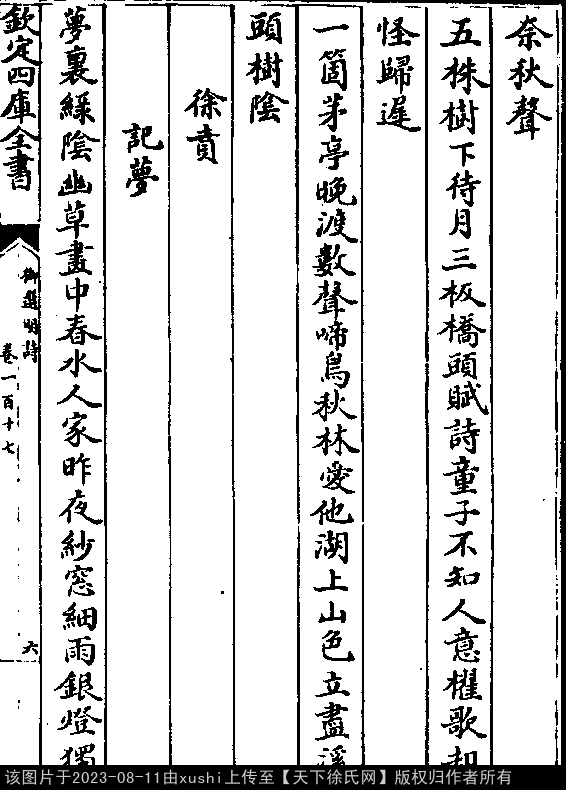 奈秋聲
五株樹下待月三板橋頭賦詩童子不知人意櫂歌却
怪歸遲
一箇茅亭晚渡數聲啼鳥秋林愛他湖上山色立盡溪
頭樹陰
徐賁
記夢
夢裏緑陰幽草畫中春水人家昨夜紗窓細雨銀燈獨
欽定四庫全書
御選明詩
卷一百十七
六
该图片于2023-08-11由xushi上传至【天下徐氏网】版权归作者所有